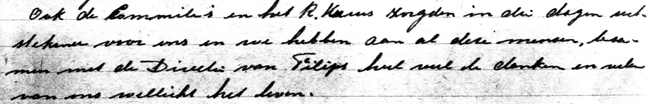 Ook de Commilis en het R. Kruis zorgden in die dagen uit-
stekend voor ons en we hebben aan al deze mensen, tesa-
men met de Directie van Filips heel veel te danken en velen
van ons wellicht het leven.